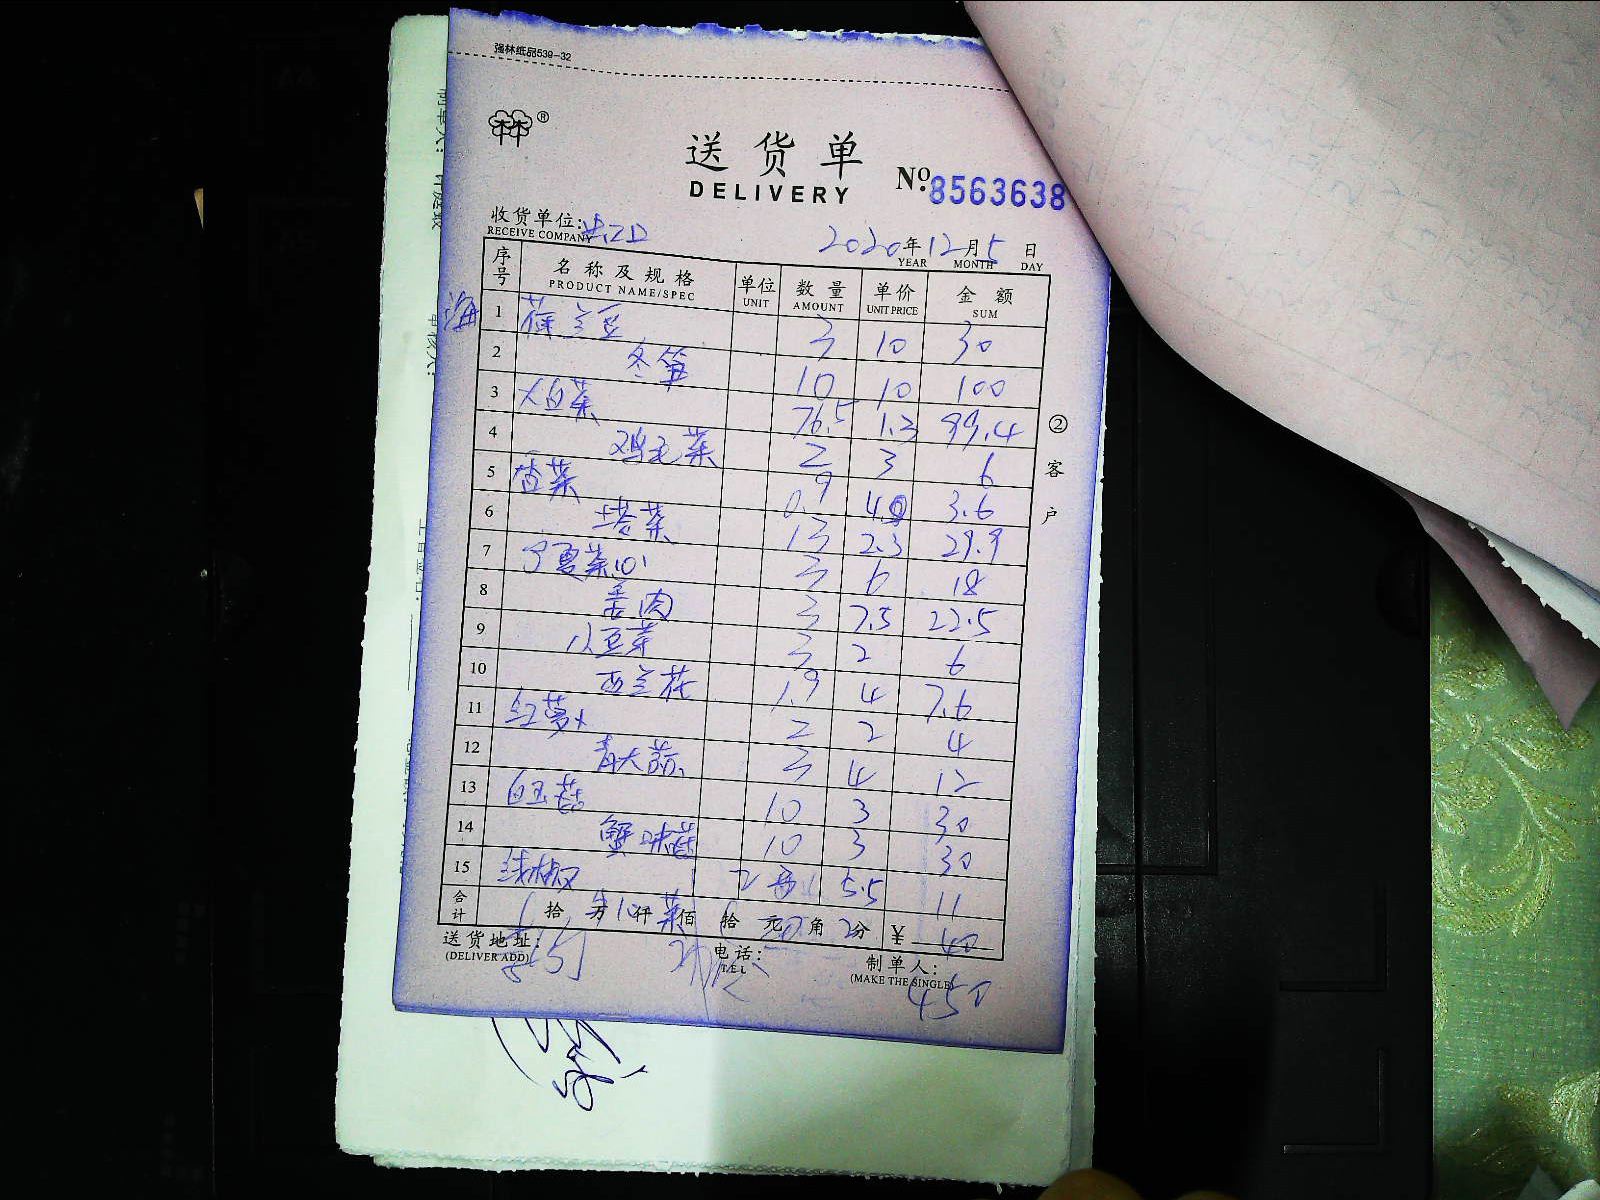 强林纸品539-32
®
送货单
DELIVERY
No. 8563638
收货单位:
RECEIVE COMPANY
2020年12月5日
YEAR MONTH DAY
序号 名称及规格 单位 数量 单价 金额
PRODUCT NAME/SPEC UNIT AMOUNT UNIT PRICE SUM
海
1 荷兰豆 3 10 30
2 冬笋 10 10 100
3 大白菜 76.5 1.3 99.4
4 鸡毛菜 2 3 6
5 香菜 0.9 4.0 3.6
6 塔菜 13 2.3 29.9
7 宁夏菜心 3 6 18
8 3 7.5 22.5
9 小豆芽 3 2 6
10 西兰花 1.9 4 7.6
11 红萝卜 2 2 4
12 青大蒜 3 4 12
13 白玉菇 10 3 30
14 蟹味菇 10 3 30
15 线椒 2 5.5 11
合计 拾 万 仟 佰 拾 元 角 分 ¥
送货地址:
(DELIVER ADD)
电话:
TEL
制单人:
(MAKE THE SINGLE)
②客户